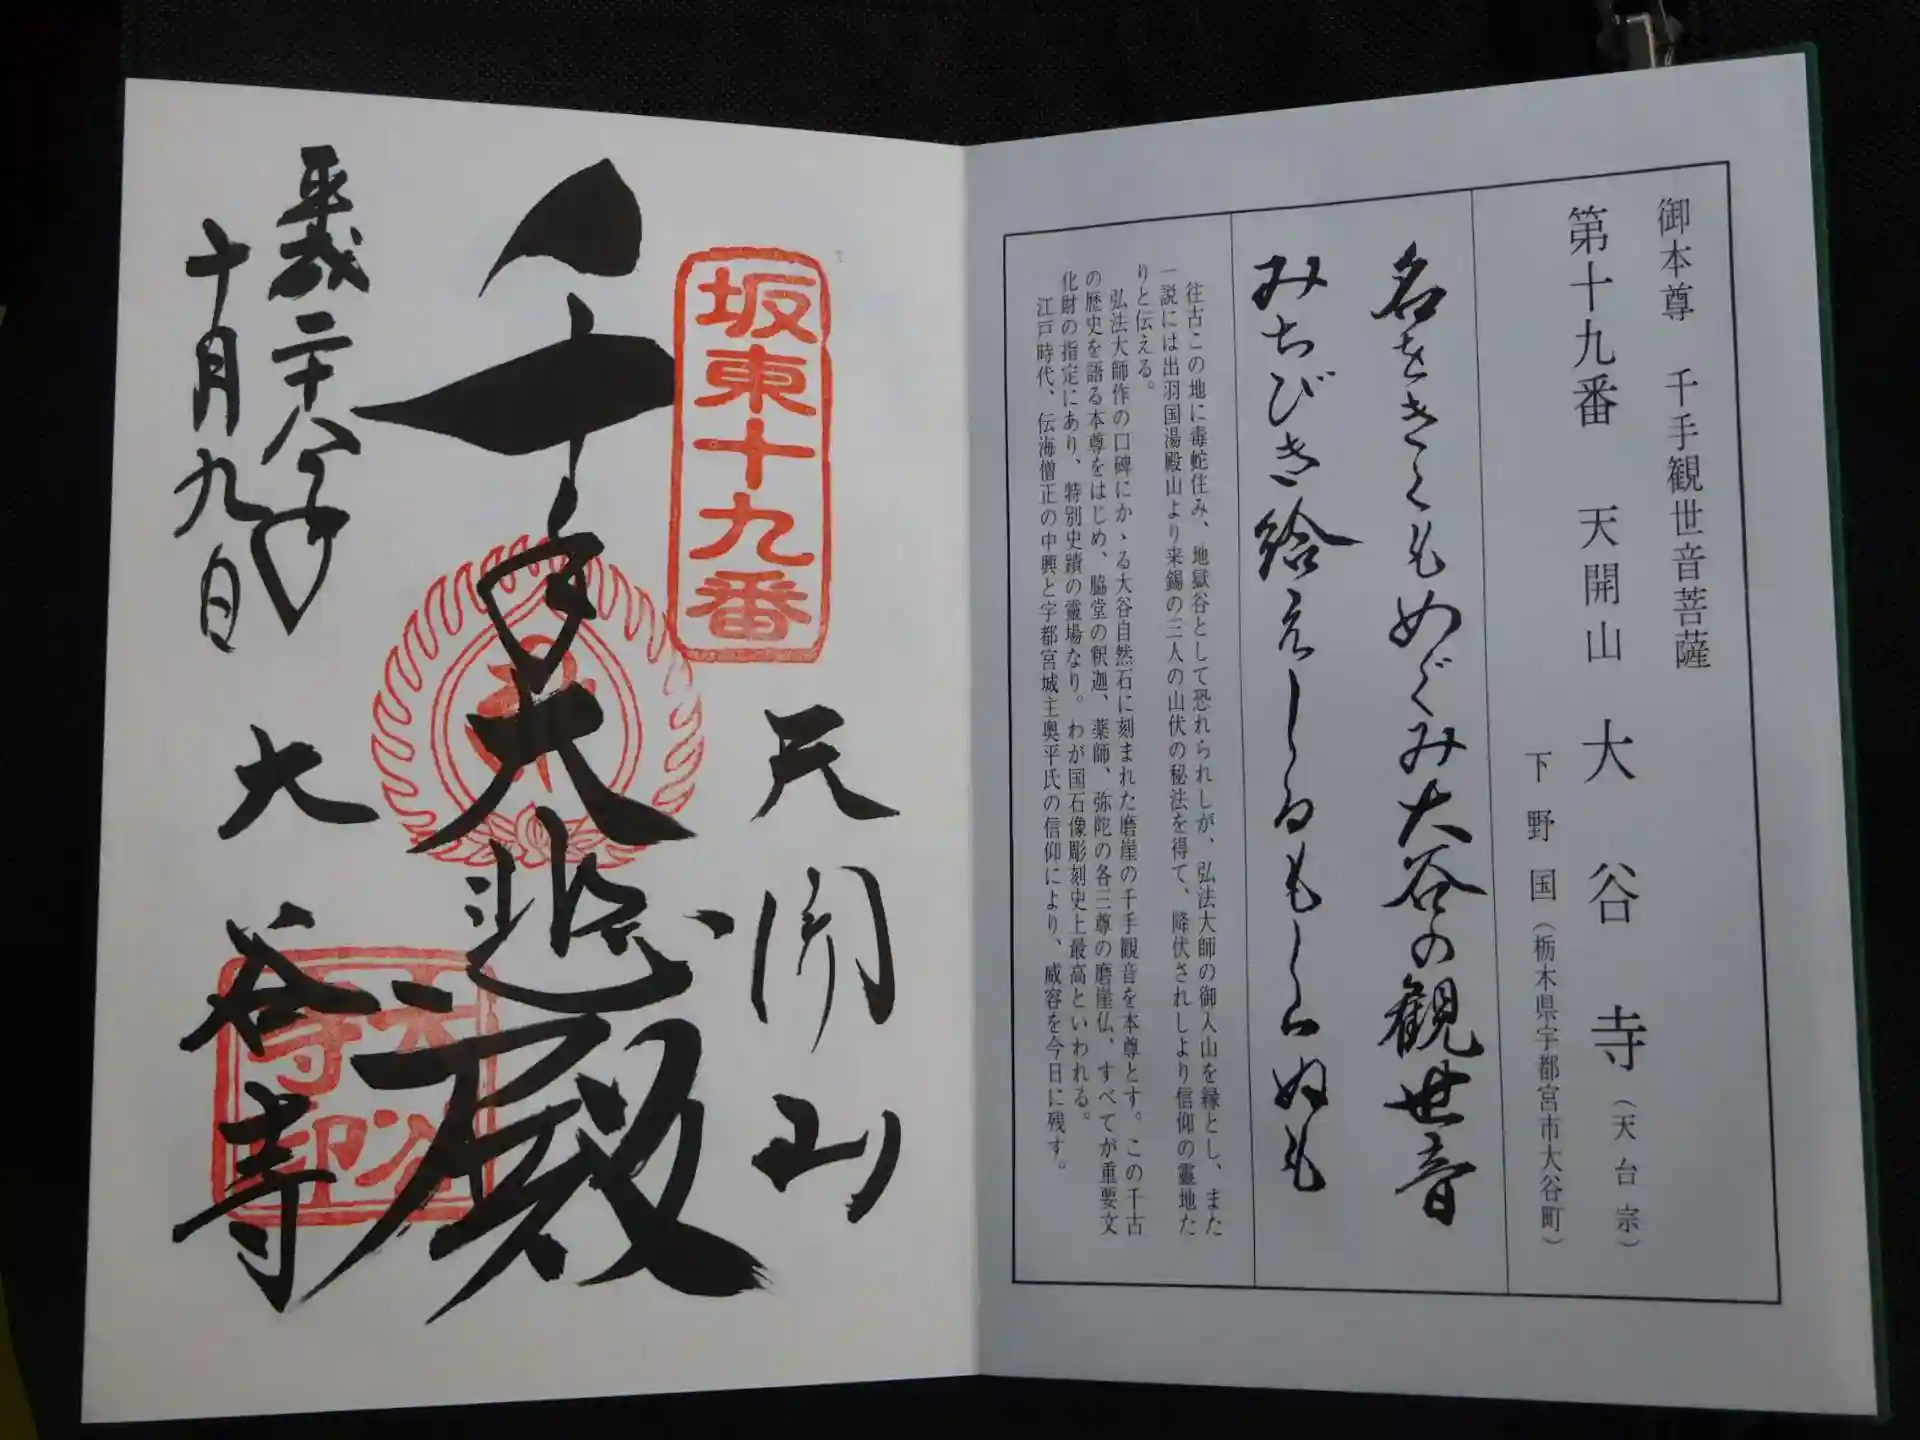 御本尊 千手観世音菩薩
第十九番 天開山 大谷寺（天台宗）
下野国（栃木県宇都宮市大谷町）
名をきくもめぐみ大谷の観世音
みちびき給えしるもしらぬも
往古この地に毒蛇住み、地獄谷として恐れられしが、弘法大師の御入山を縁とし、また
一説には出羽国湯殿山より来錫の三人の山伏の秘法を得て、降伏されしより信仰の霊地た
りと伝える。
弘法大師作の口碑にかゝる大谷自然石に刻まれた磨崖の千手観音を本尊とす。この千古
の歴史を語る本尊をはじめ、脇堂の釈迦、薬師、弥陀の各三尊の磨崖仏、すべてが重要文
化財の指定にあり、特別史蹟の霊場なり。わが国石像彫刻史上最高といわれる。
江戸時代、伝海僧正の中興と宇都宮城主奥平氏の信仰により、威容を今日に残す。
坂東十九番
天開山
千手大悲殿
平成二十八年
十月九日
大谷寺
大谷寺印